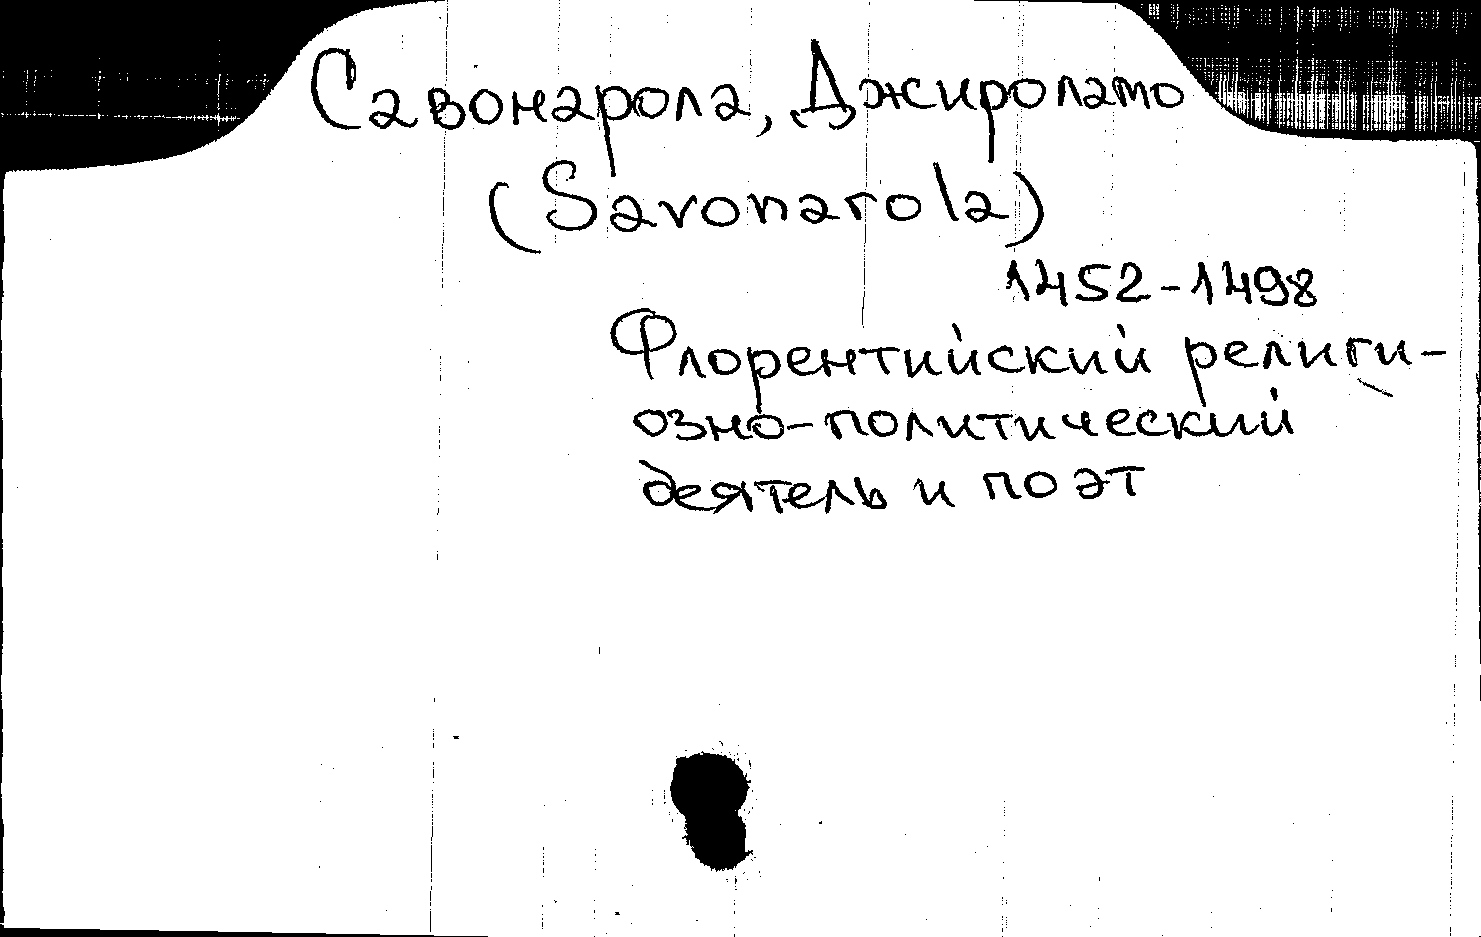 Савонарола, Джироламо
(Savonarola)
1452-1498
Флорентийский религи-
озно-политический
деятель и поэт